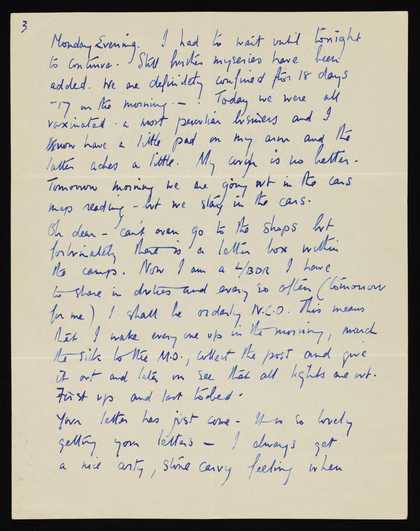 3
Monday Evening. I had to wait until tonight
to continue. Still further miseries have been
added. We are definitely confined for 18 days
- 17 in the morning - ! Today we were all
vaxinated. a most peculiar business and I
now have a little pad on my arm and the
latter aches a little. My cough is no better.
Tomorrow morning we are going out in the cars
map reading - but we stay in the cars.
Oh dear - can't even go to the shops but
fortunately there is a letter box within
the camps. Now I am a L/BDR I have
to share in duties and every so often (tomorrow
for me) I shall be orderly N.C.O. This means
that I wake everyone up in the morning, march
the sick to the M.O., collect the post and give
it out and later on see that all lights are out.
First up and last to bed.
Your letter has just come. It is so lovely
getting your letters - I always get
a nice arty, stone carvy feeling when